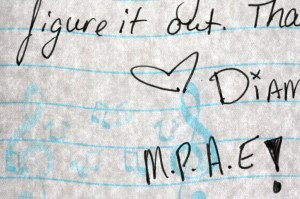 figure it out. Tha
Diam
M.P.A.E!